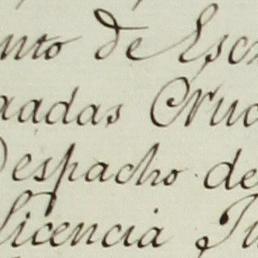 nto de Esc
adas Cruc
Despacho de
licencia Ju